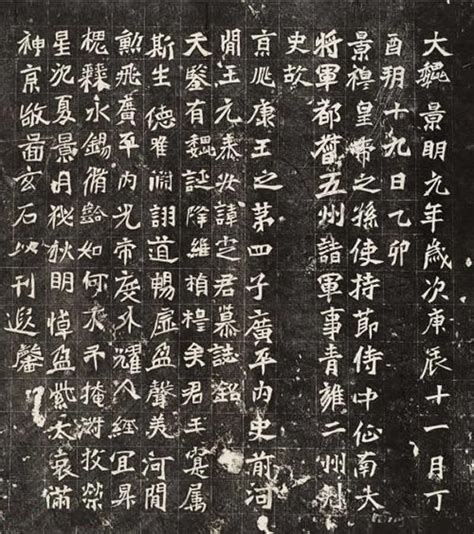 大魏景明元年歲次庚辰十一月丁
酉朔十九日乙卯
景穆皇帝之孫使持節侍中征南大
將軍都督五州諸軍事青雍二州刺
史故
京兆康王之第四子廣平内史前河
間王元泰安諱定君墓誌銘
天鑒有魏誕降維楨穆矣君王寔属
斯生德淵詡道暢虛盈聲美河間
勲飛廣平内光帝度外耀人經宜昇
槐棘永錫脩齡如何不掩收榮
星沉夏景月秋明悼盈紫太哀滿
神京敬啚玄石以刊遐馨